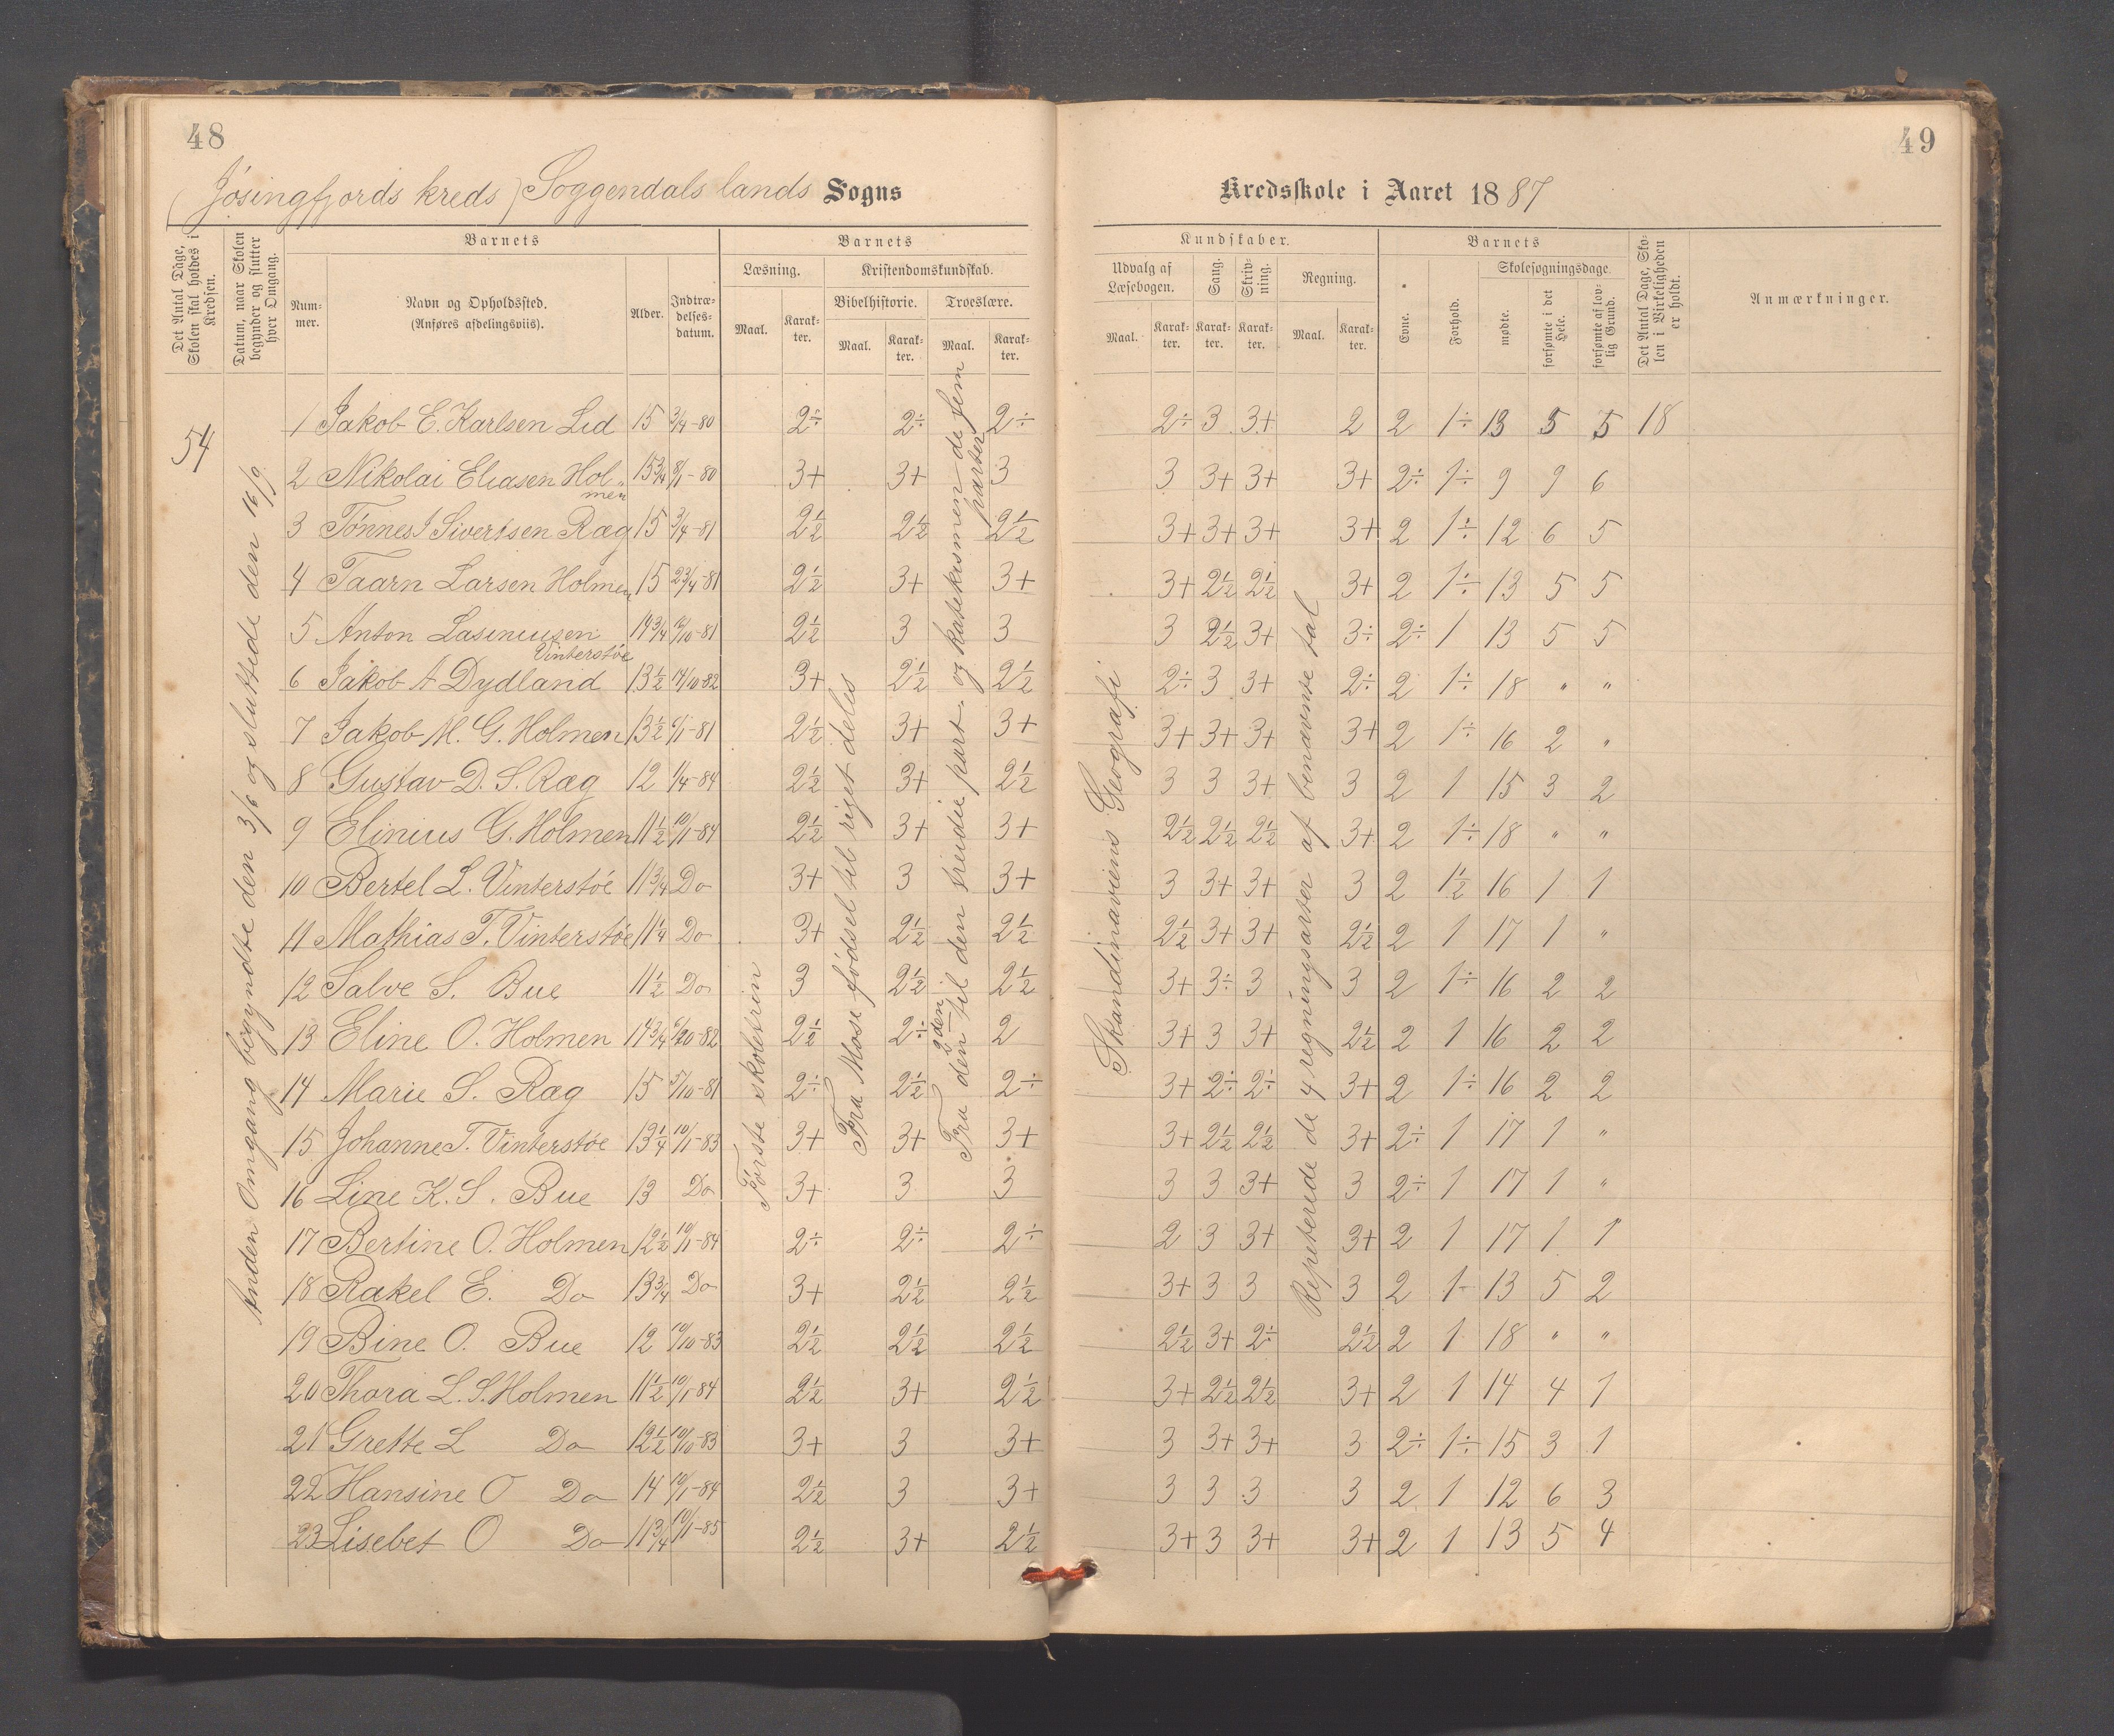 48
(Jøsingfjords kreds) Soggendals lands Sogns
Det Antal Dage, Skolen skal holdes i Kredsen.
Datum, naar Skolen begynder og slutter hver Omgang.
Barnets
Num-mer.
Navn og Opholdssted.
(Anføres afdelingsviis).
Alder.
Indtræ-delses-datum.
Barnets
Læsning.
Kristendomskundskab.
Bibelhistorie.
Troeslære.
Maal. Karak-ter. Maal. Karak-ter. Maal. Karak-ter.
54
Anden Omgang begyndte den 3/6 og sluttede den 16/9
Første skoletrin
Fra Mose fødsel til riget deles
Fra den 2den til den tredie part. og katekismen de fem parter
1 Jakob E. Karlsen Lid 15 3/4-80 2÷ 2÷ 2÷
2 Nikolai Eliasen Hol-men 15 3/4 8/1-80 3+ 3+ 3
3 Tønnes J Sivertsen Ræg 15 3/4-81 2½ 2½ 2½
4 Taarn Larsen Holmen 15 23/4-81 2½ 3+ 3+
5 Anton Lasinuusen Vinterstøe 14¾ 19/10-81 2½ 3 3
6 Jakob A Dydland 13½ 14/10-82 3+ 2½ 2½
7 Jakob M. G. Holmen 13½ 6/1-81 2½ 3+ 3+
8 Gustav D. S. Ræg 12 1/4-84 2½ 3+ 2½
9 Elinius G. Holmen 11½ 10/1-84 2½ 3+ 3+
10 Bertel L. Vinterstøe 11¾ Do 3+ 3 3+
11 Mathias T. Vinterstøe 11¼ Do 3+ 2½ 2½
12 Salve S. Bue 11½ Do 3 2½ 2½
13 Eline O. Holmen 14¾ 6/10-82 2½ 2÷ 2
14 Marie S. Ræg 15 5/10-81 2÷ 2½ 2÷
15 Johanne T. Vinterstøe 13¼ 10/1-83 3+ 3+ 3+
16 Line K. S. Bue 13 Do 3+ 3 3
17 Bertine O. Holmen 12½ 10/1-84 2÷ 2÷ 2÷
18 Rakel E. Do 13¾ Do 3+ 2½ 2½
19 Bine O. Bue 12 10/10-83 2½ 2½ 2½
20 Thora L. S. Holmen 11½ 10/1-84 2½ 3+ 2½
21 Grette L Do 12½ 10/10-83 3+ 3 3+
22 Hansine O Do 14 10/1-84 2½ 3 3+
23 Lisebet O Do 11¾ 10/1-85 2½ 3+ 2½
49
Kredsskole i Aaret 1887
Kundskaber.
Udvalg af Læsebogen.
Sang.
Skriv-ning.
Regning.
Maal. Karak-ter. Karak-ter. Karak-ter. Maal. Karak-ter.
Barnets
Evne.
Forhold.
Skolesøgningsdage.
mødte.
forsømte i det Hele.
forsømte af lov-lig Grund.
Det Antal Dage, Sko-len i Virkeligheden er holdt.
Anmærkninger.
Skandinaviens Geografi
Repeterede de 4 regningsarter af benævnte tal
2÷ 3 3+ 2 2 1÷ 13 5 5 18
3 3+ 3+ 3+ 2÷ 1÷ 9 9 6
3+ 3+ 3+ 3+ 2 1÷ 12 6 5
3+ 2½ 2½ 3+ 2 1÷ 13 5 5
3 2½ 3+ 3÷ 2÷ 1 13 5 5
2÷ 3 3+ 2÷ 2 1÷ 18 " "
3+ 3+ 3+ 3+ 2 1÷ 16 2 "
3 3 3+ 3 2 1 15 3 2
2½ 2½ 2½ 3+ 2 1÷ 18 " "
3 3+ 3+ 3 2 1½ 16 1 1
2½ 3+ 3+ 2½ 2 1 17 1 "
3+ 3÷ 3 3 2 1÷ 16 2 2
3+ 3 3+ 2½ 2 1 16 2 2
3+ 2÷ 2÷ 3+ 2 1÷ 16 2 2
3+ 2½ 2½ 3+ 2÷ 1 17 1 "
3 3 3+ 3 2÷ 1 17 1 "
2 3 3+ 3+ 2 1 17 1 1
3+ 3 3 3 2 1- 13 5 2
2½ 3+ 2÷ 2½ 2 1 18 " "
3+ 2½ 2½ 3+ 2 1 14 4 1
3 3+ 3+ 3 2÷ 1÷ 15 3 1
3 3 3 3 2 1 12 6 3
3+ 3 3+ 3+ 2 1 13 5 4